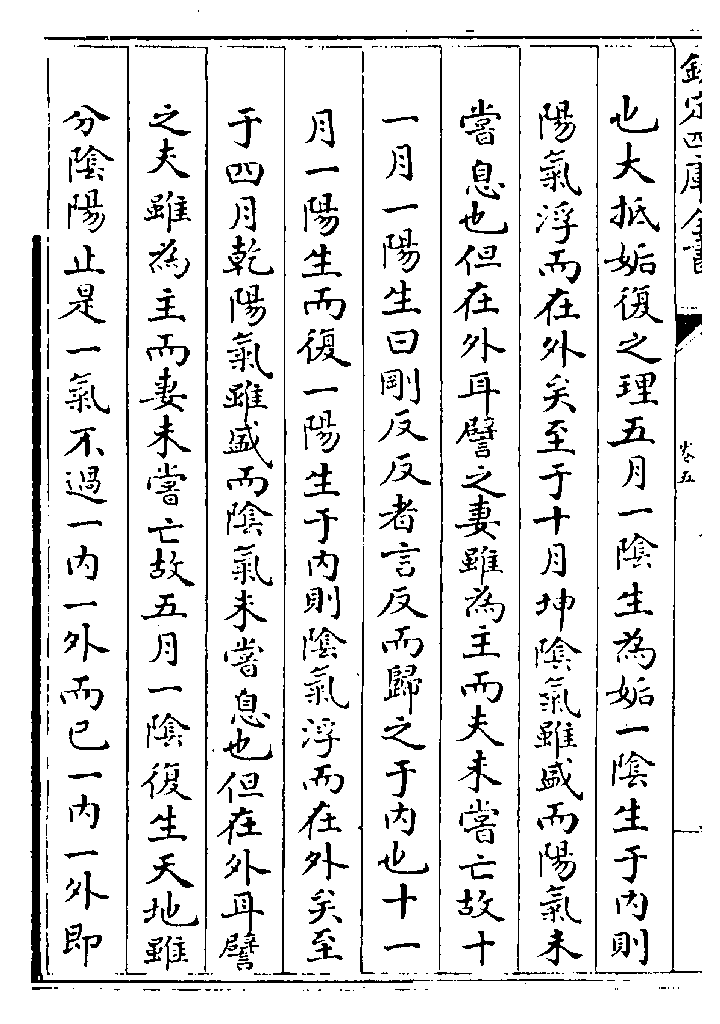 欽定四庫全書
卷五
也大抵姤復之理五月一陰生為姤一陰生于内則
陽氣浮而在外矣至于十月坤陰氣雖盛而陽氣未
嘗息也但在外耳譬之妻雖為主而夫未嘗亡故十
一月一陽生曰剛反反者言反而歸之于内也十一
月一陽生而復一陽生于内則陰氣浮而在外矣至
于四月乾陽氣雖盛而陰氣未嘗息也但在外耳譬
之夫雖為主而妻未嘗亡故五月一陰復生天地雖
分陰陽止是一氣不過一内一外而已一内一外即